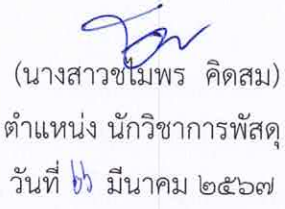 (นางสาวชไมพร คิดสม)
ตำแหน่ง นักวิชาการพัสดุ
วันที่ มีนาคม ๒๕๖๗